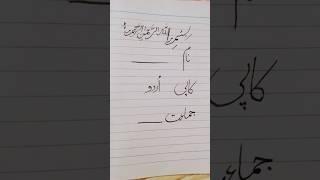 بسم اللہ الرحمٰن الرحیم
نام ______
کاپی اُردو
جماعت ____